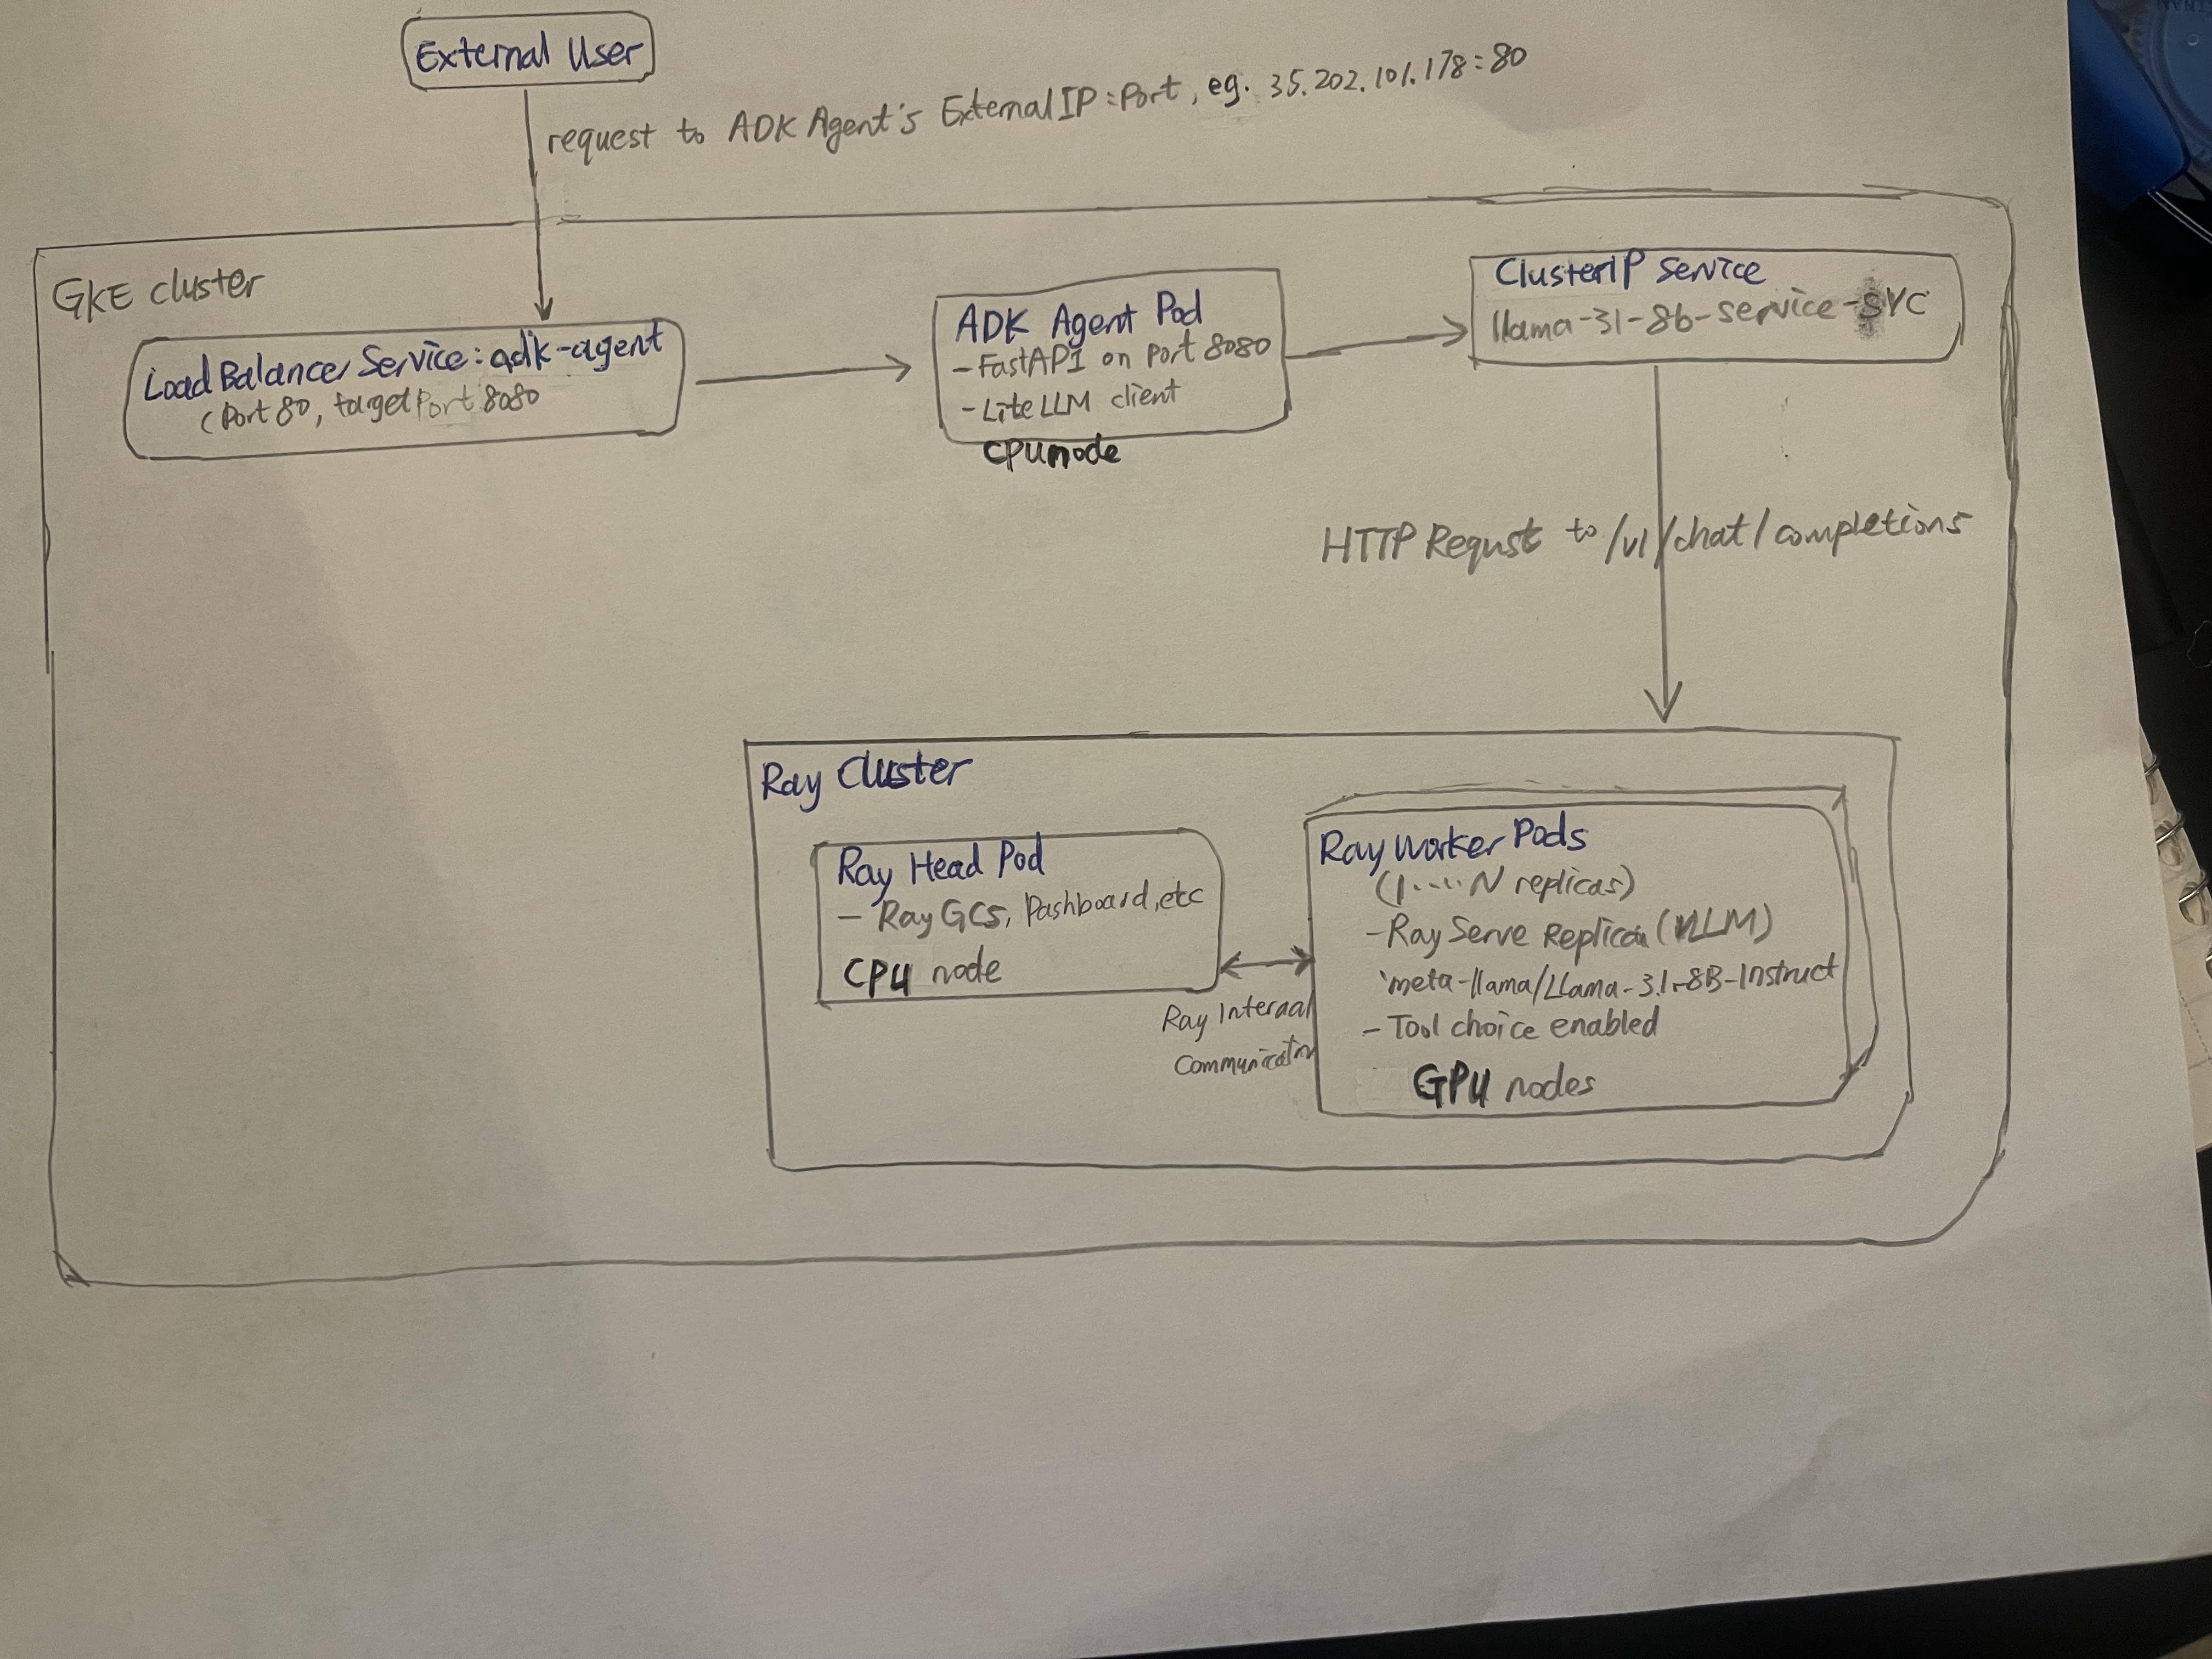 External User
request to ADK Agent's ExternalIP:Port, eg. 35.202.101.178:80
GKE cluster
LoadBalancer Service: adk-agent
(Port 80, targetPort 8080
ADK Agent Pod
- FastAPI on port 8080
- LiteLLM client
CPU node
ClusterIP Service
llama-31-8b-service-svc
HTTP Requst to /v1/chat/completions
Ray Cluster
Ray Head Pod
- Ray GCS, Dashboard, etc
CPU node
Ray Internal
Communication
Ray Worker Pods
(1.....N replicas)
- Ray Serve Replica (vLLM)
'meta-llama/Llama-3.1-8B-Instruct
- Tool choice enabled
GPU nodes